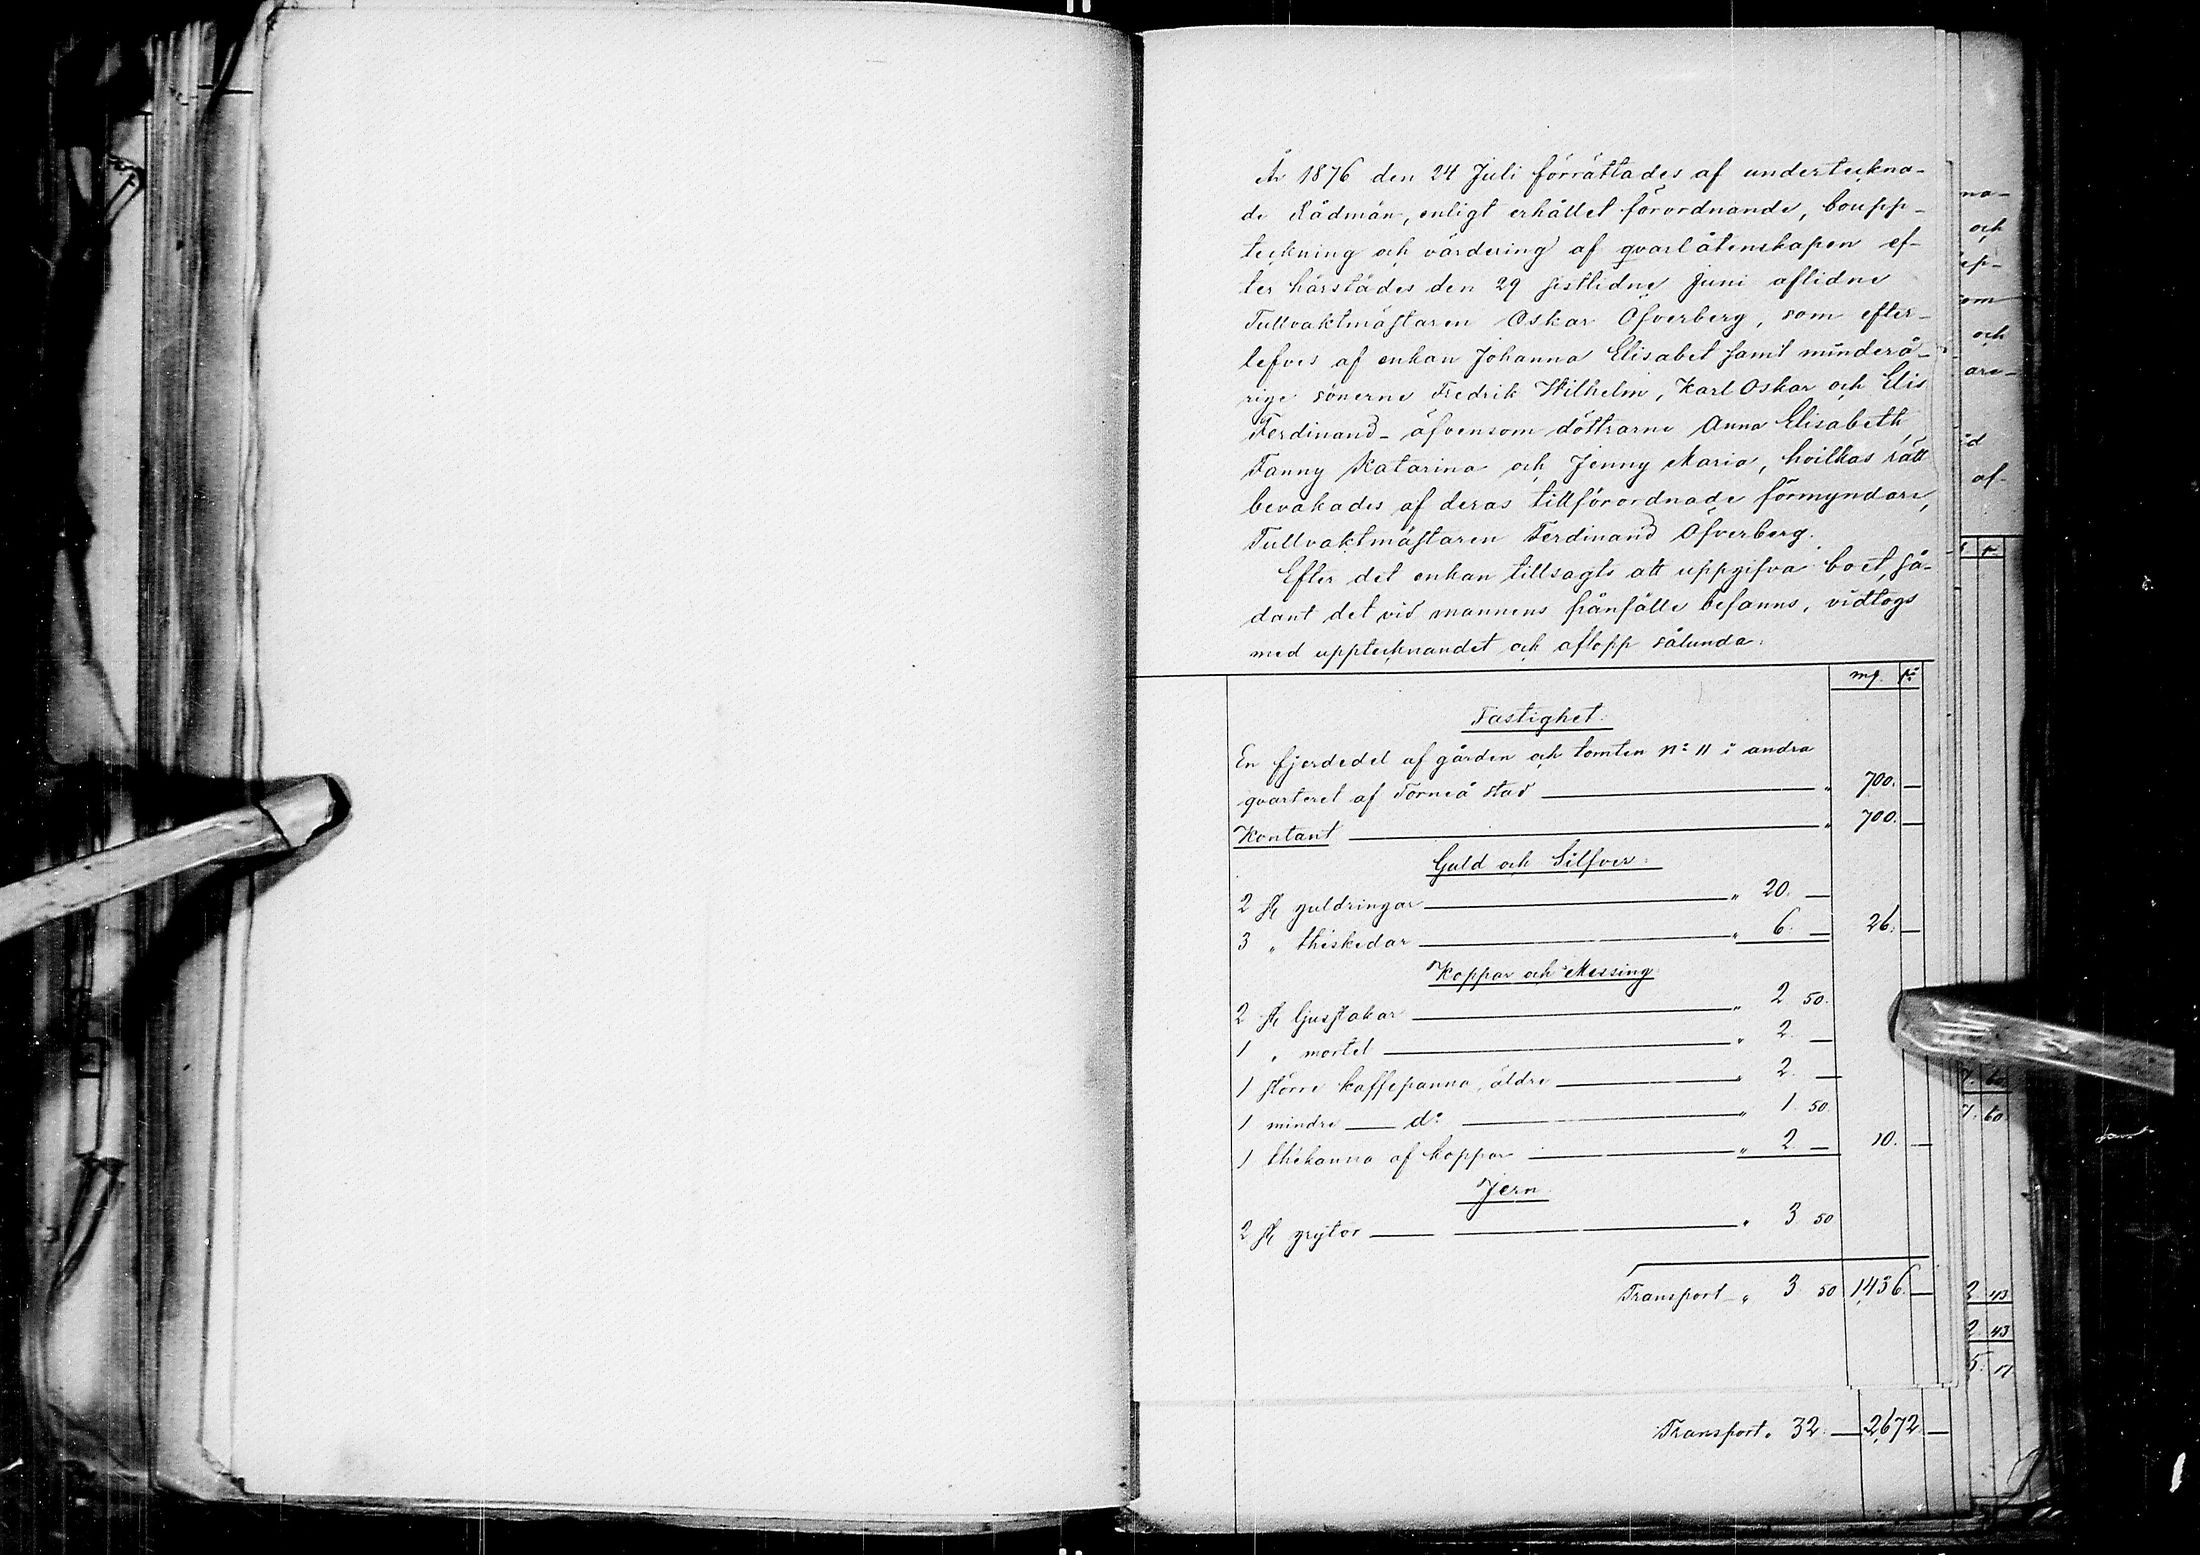 År 1876 den 24 Juli förrättades af underteckna-
de Rådmän, enligt erhållet förordnande, boupp-
teckning och värdering af qvarlåtenskapen ef-
ter härstädes den 29 sistlidne Juni aflidne
Tullvaktmästaren Oskar Öfverberg, som efter-
lefves af enkan Johanna Elisabet samt minderå-
rige sönerne Fredrik Wilhelm, Karl Oskar och Elis
Ferdinand - äfvensom döttrarne Anna Elisabeth,
Fanny Katarina och Jenny Maria, hvilkas rätt
bevakades af deras tillförordnade förmyndare,
Tullvaktmästaren Ferdinand Öfverberg.
Efter det enkan tillsagts att uppgifva boet, så-
dant det vid mannens frånfälle befanns, vidtogs
med upptecknandet och aflopp sålunda:
mf. pi
Fastighet.
En fjerdedel af gården och tomten No 11 i andra
qvarteret af Torneå stad — " 700. —
Kontant — " 700. —
Guld och Silfver:
2 st guldringar — " 20. —
3 " théskedar — " 6. — 26. —
Koppar och Messing
2 st ljusstakar — " 2 50.
1 " mortel — " 2. —
1 större kaffepanna, äldre — " 2. —
1 mindre — do — " 1. 50
1 thékanna af koppar — " 2 — 10. —
Jern
2 st grytor — " 3 50
Transport " 3 50 1,436. —
Transport " 32. — 2,672 —
na-
och
ep-
om
och
are-
id
af-
7. 60
7. 60
2 43
2 43
5. 17